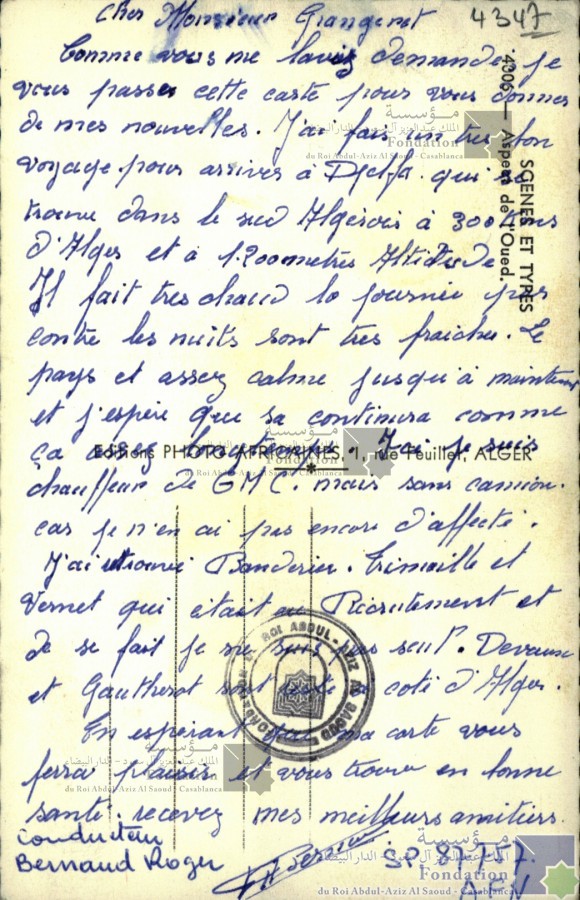 Cher Monsieur Grangenet
4347
Comme vous me laviez demander je
vous passer cette carte pour vous donner
de mes nouvelles. J'ai fais un tres bon
voyage pour arriver à Djelfa. qui se
trouve dans le sud Algerois à 300 kms
d'Alger et à 1.200 metrès Altitude
Il fait tres chaud la journée par
contre les nuits sont tres fraiche. Le
pays et assez calme jusqu'à maintenant
et j'espère que sa continura comme
ça assez longtemps. Ici je suis
chauffeur de G M C mais sans camion.
car je n'en ai pas encore d'affecté.
J'ai retrouvé Banderier. Limaille et
Vernet qui était au Recrutement et
de se fait je ne suis pas seul. Devaux
et Gautherot sont resté coté d'Alger.
En espérant que ma carte vous
ferra plaisir et vous trouve en bonne
santé. recevez mes meilleurs amitiers.
conducteur
Bernaud Roger
SP. 87.757.
A.F.N
4006 — SCENES ET TYPES
Aspect de l'Oued.
Editions PHOTO AFRICAINES, 1, rue Feuillet, ALGER
مؤسسة
الملك عبد العزيز آل سعود - الدار البيضاء
Fondation
du Roi Abdul-Aziz Al Saoud - Casablanca
FONDATION DU ROI ABDUL-AZIZ AL SAOUD